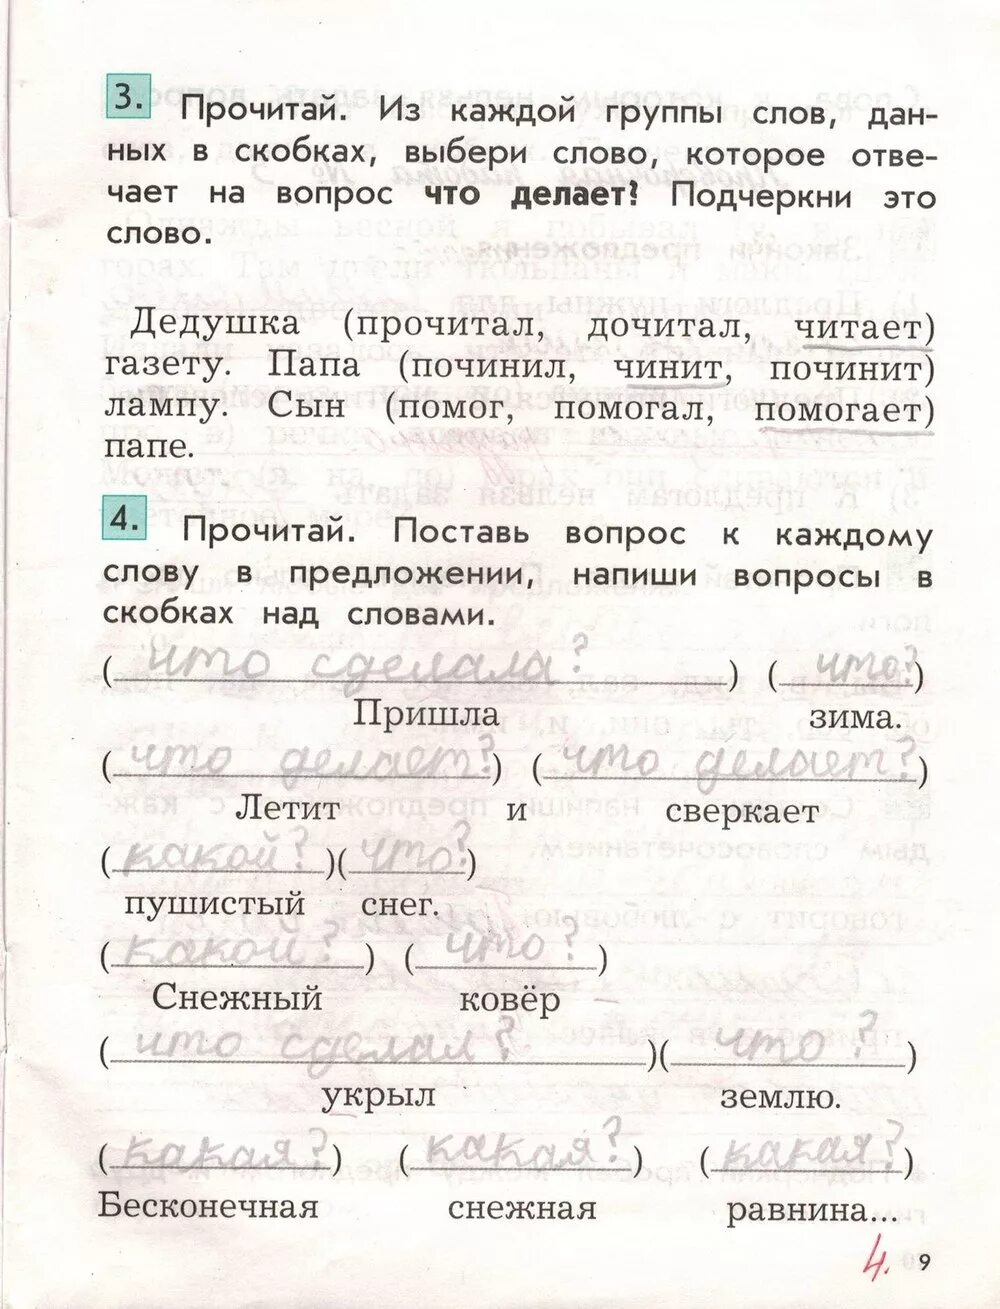 3. Прочитай. Из каждой группы слов, дан-
ных в скобках, выбери слово, которое отве-
чает на вопрос что делает? Подчеркни это
слово.
Дедушка (прочитал, дочитал, читает)
газету. Папа (починил, чинит, починит)
лампу. Сын (помог, помогал, помогает)
папе.
4. Прочитай. Поставь вопрос к каждому
слову в предложении, напиши вопросы в
скобках над словами.
(что сделала?) (что?)
Пришла зима.
(что делает?) (что делает?)
Летит и сверкает
(какой?)(что?)
пушистый снег.
(какой?) (что?)
Снежный ковёр
(что сделал?)(что?)
укрыл землю.
(какая?) (какая?) (какая?)
Бесконечная снежная равнина...
4. 9